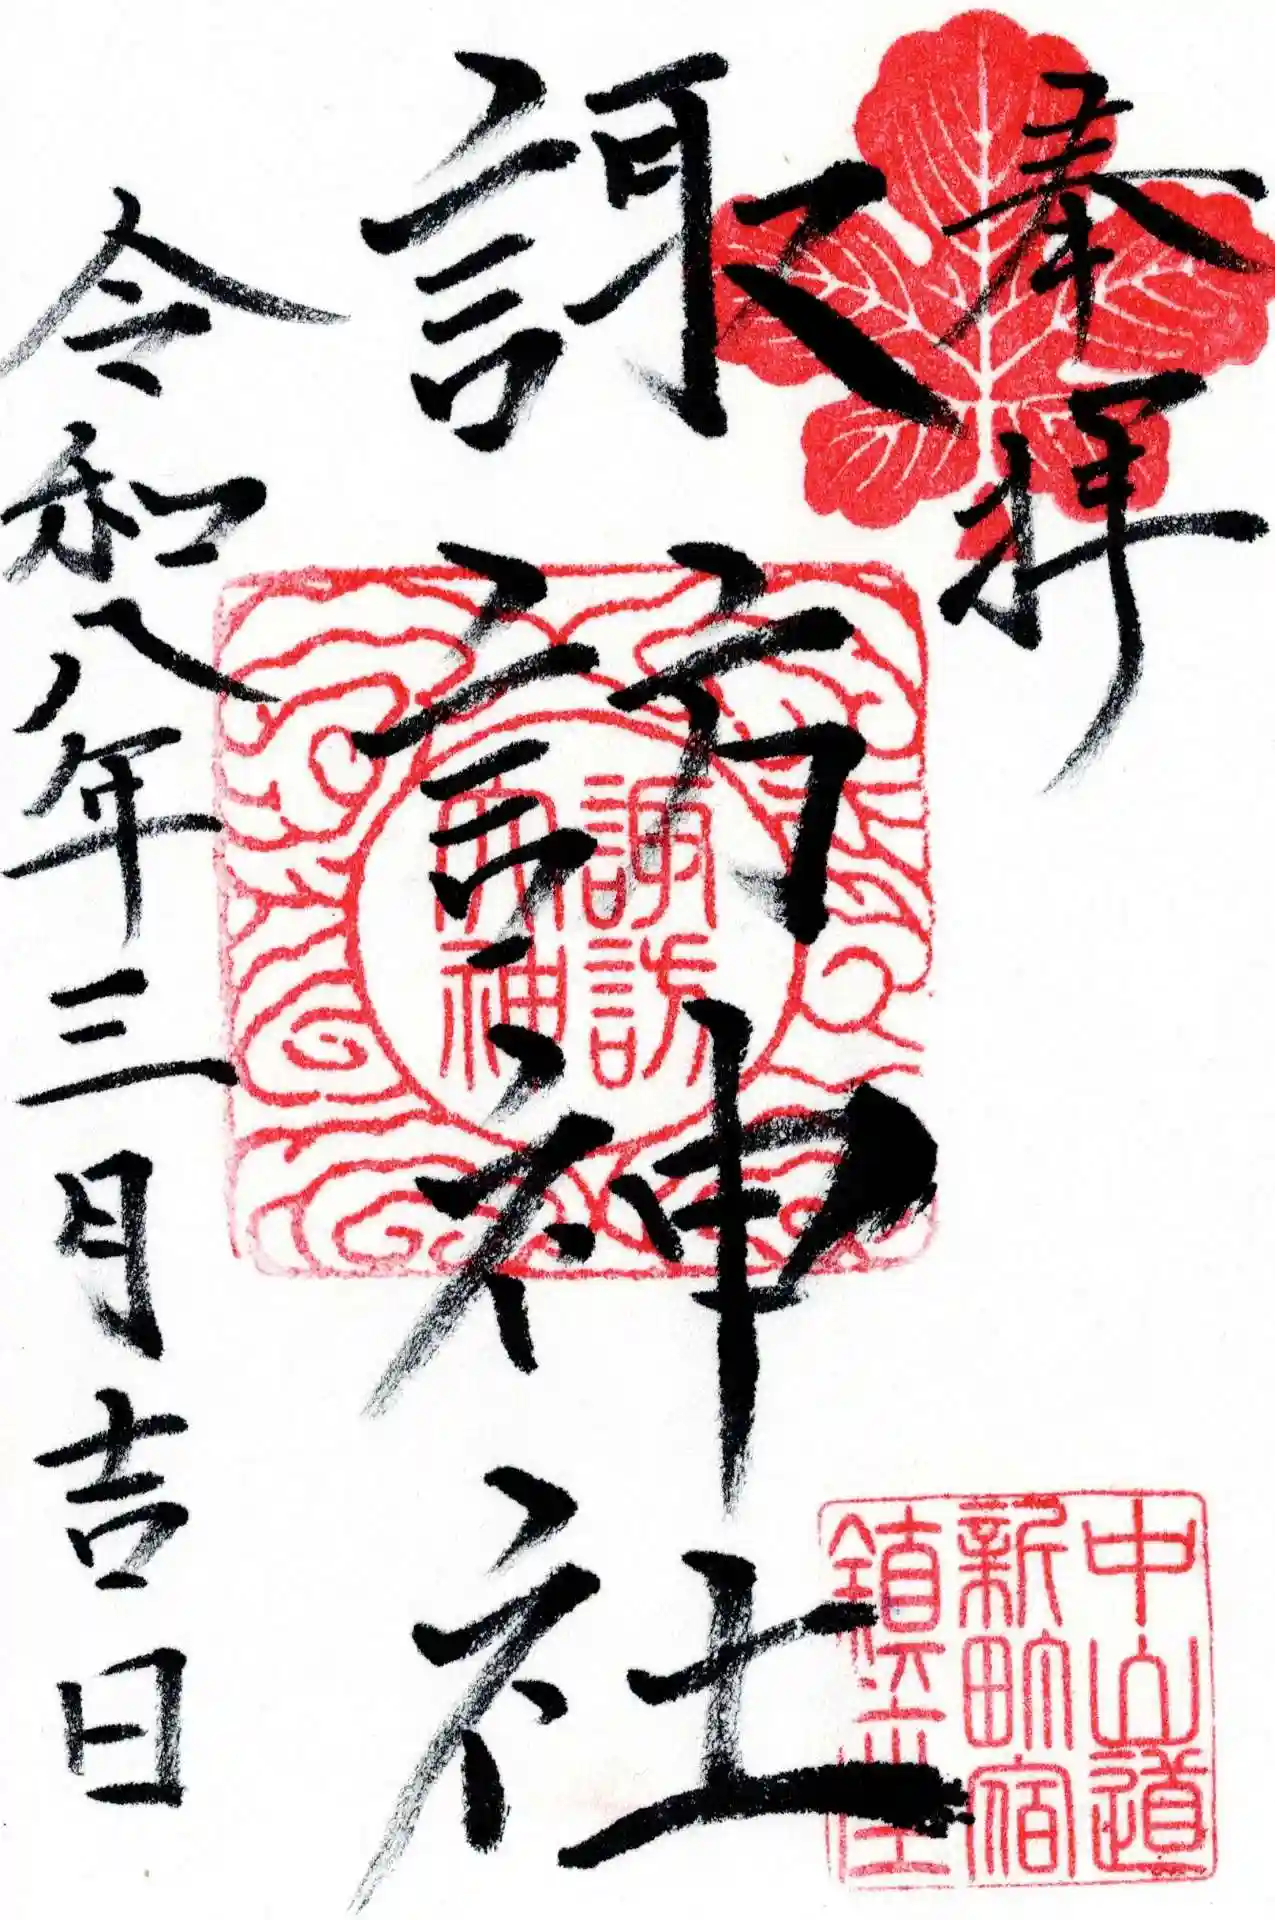 奉拝
諏訪神社
令和八年三月吉日
諏訪
大神
中山道
新町宿
鎮座